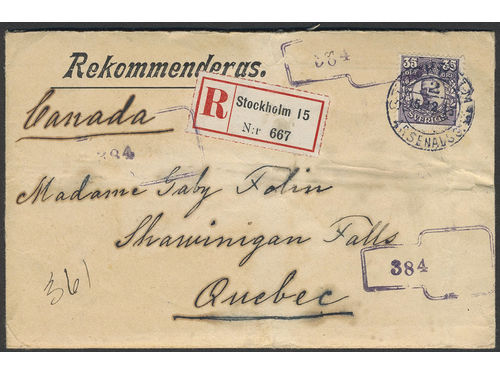 Rekommenderas.
384
35 35
SVERIGE
2
R Stockholm 15
N:r 667
Canada
384
Madame Gaby Folin
Shawinigan Falls
384
Quebec
361